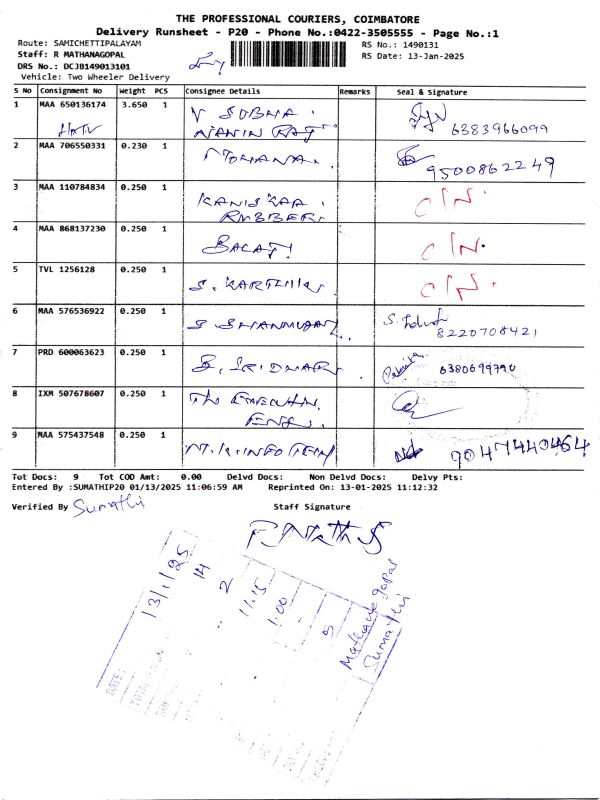 THE PROFESSIONAL COURIERS, COIMBATORE
Delivery Runsheet - P20 - Phone No.:0422-3505555 - Page No.:1
Route: SAMICHETTIPALAYAM
Staff: R MATHANAGOPAL
DRS No.: DCJB149013101
Vehicle: Two Wheeler Delivery
RS No.: 1490131
RS Date: 13-Jan-2025
S No Consignment No Weight PCS Consignee Details Remarks Seal & Signature
1 MAA 650136174 3.650 1 V SOBHA.
NAVIN RAJ 6383966099
2 MAA 706550331 0.230 1 MOHANA. 9500862249
3 MAA 110784834 0.250 1 KANISKAA.
RUBBER. C/N.
4 MAA 868137230 0.250 1 BALAJI C/N.
5 TVL 1256128 0.250 1 S. KARTHIK C/N.
6 MAA 576536922 0.250 1 S SHANMUGAM S. 8220708421
7 PRD 600063623 0.250 1 S. SRIDHAR 6380699790
8 IXM 507678607 0.250 1 The EXECUTIVE.
ENG.
9 MAA 575437548 0.250 1 M.K. INFO TECH 9047440464
Tot Docs: 9 Tot COD Amt: 0.00 Delvd Docs: Non Delvd Docs: Delvy Pts:
Entered By :SUMATHIP20 01/13/2025 11:06:59 AM Reprinted On: 13-01-2025 11:12:32
Verified By Sumathi Staff Signature
DATE: 13/1/25
TOTAL 14
2
11.15
1.00
5
Mathanagopal
Sumathi